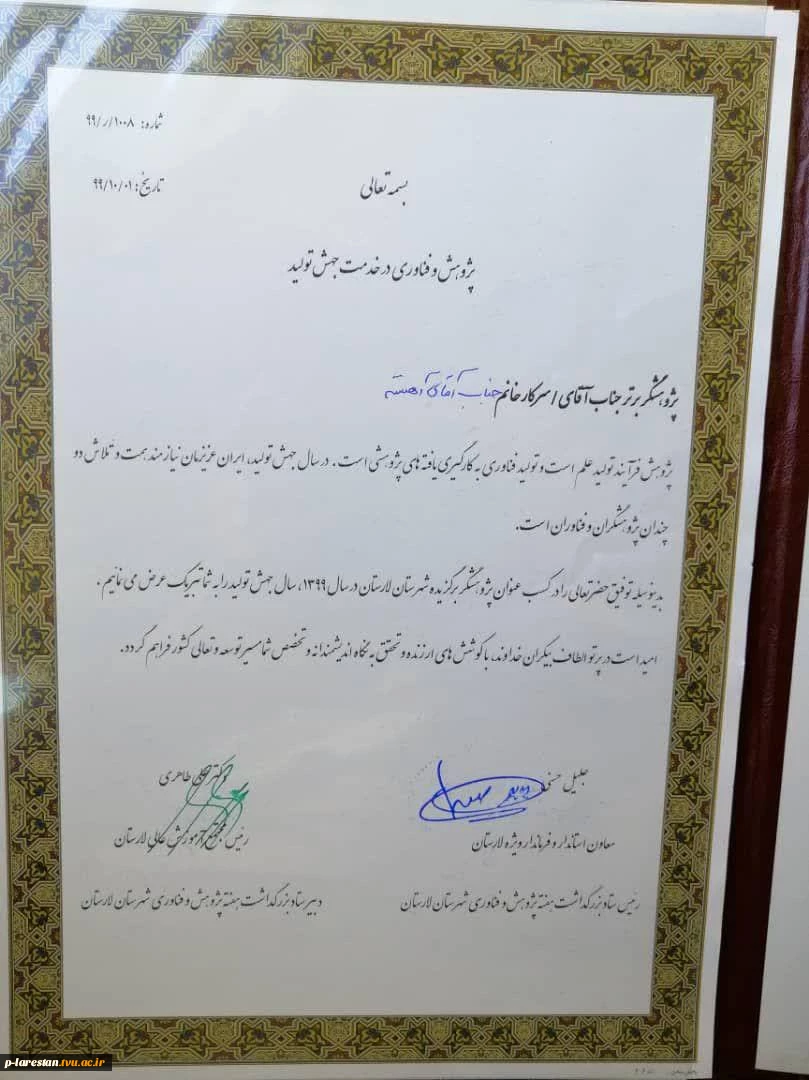 شماره: ۱۰۰۸/ر/۹۹
تاریخ: ۹۹/۱۰/۰۱
بسمه تعالی
پژوهش و فناوری در خدمت جهش تولید
پژوهشگر برتر جناب آقای / سرکار خانم جناب آقای آهسته
پژوهش فرآیند تولید علم است و تولید فناوری به کارگیری یافته های پژوهشی است. در سال جهش تولید، ایران عزیزمان نیازمند همت و تلاش دو
چندان پژوهشگران و فناوران است.
بدینوسیله توفیق حضرتعالی را در کسب عنوان پژوهشگر برگزیده شهرستان لارستان در سال ۱۳۹۹، سال جهش تولید را به شما تبریک عرض می نمایم.
امید است در پرتو الطاف بیکران خداوند، با کوشش های ارزنده و تحقق به نگاه اندیشمندانه و تخصص شما مسیر توسعه و تعالی کشور فراهم گردد.
جلیل حسنی
معاون استاندار و فرماندار ویژه لارستان
رئیس ستاد بزرگداشت هفته پژوهش و فناوری شهرستان لارستان
دکتر طاهری
رئیس مجتمع آموزش عالی لارستان
دبیر ستاد بزرگداشت هفته پژوهش و فناوری شهرستان لارستان
p-larestan.tvu.ac.ir